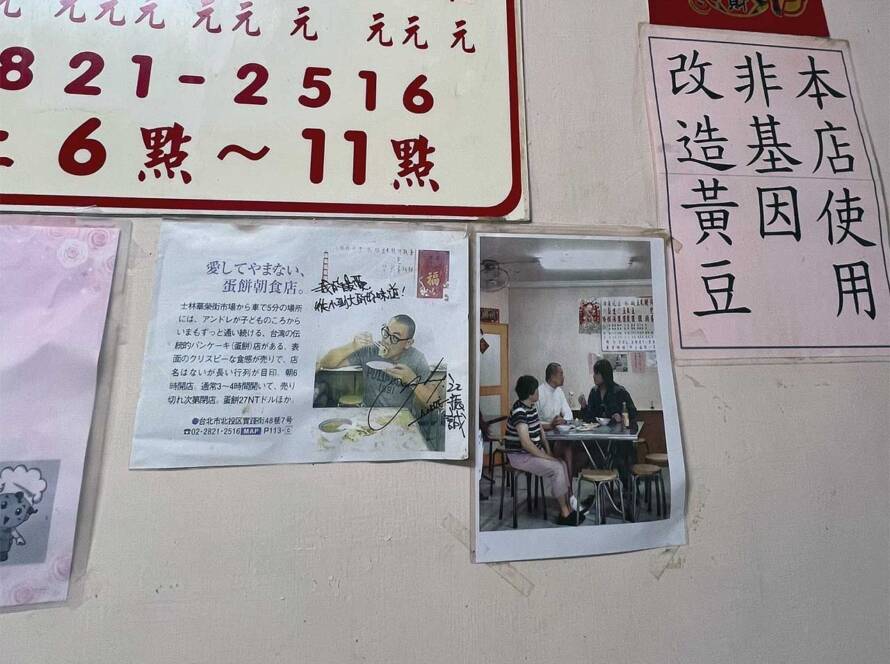 元 元 元 元 元 元 元
821-2516
6點～11點
愛してやまない、
蛋餅朝食店。
士林華榮街市場から車で5分の場所
には、アンドレが子どものころから
いまもずっと通い続ける、台湾の伝
統的パンケーキ(蛋餅)店がある、表
面のクリスピーな食感が売りで、店
名はないが長い行列が目印。朝6
時開店、通常3〜4時間開いて、売り
切れ次第閉店。蛋餅27NTドルほか。
●台北市北投区貴茂街48巷7号
☎02-2821-2516 MAP P113-C
我的最愛
從小到大的味道！
福
江振誠
本店使用
非基因
改造黃豆
財